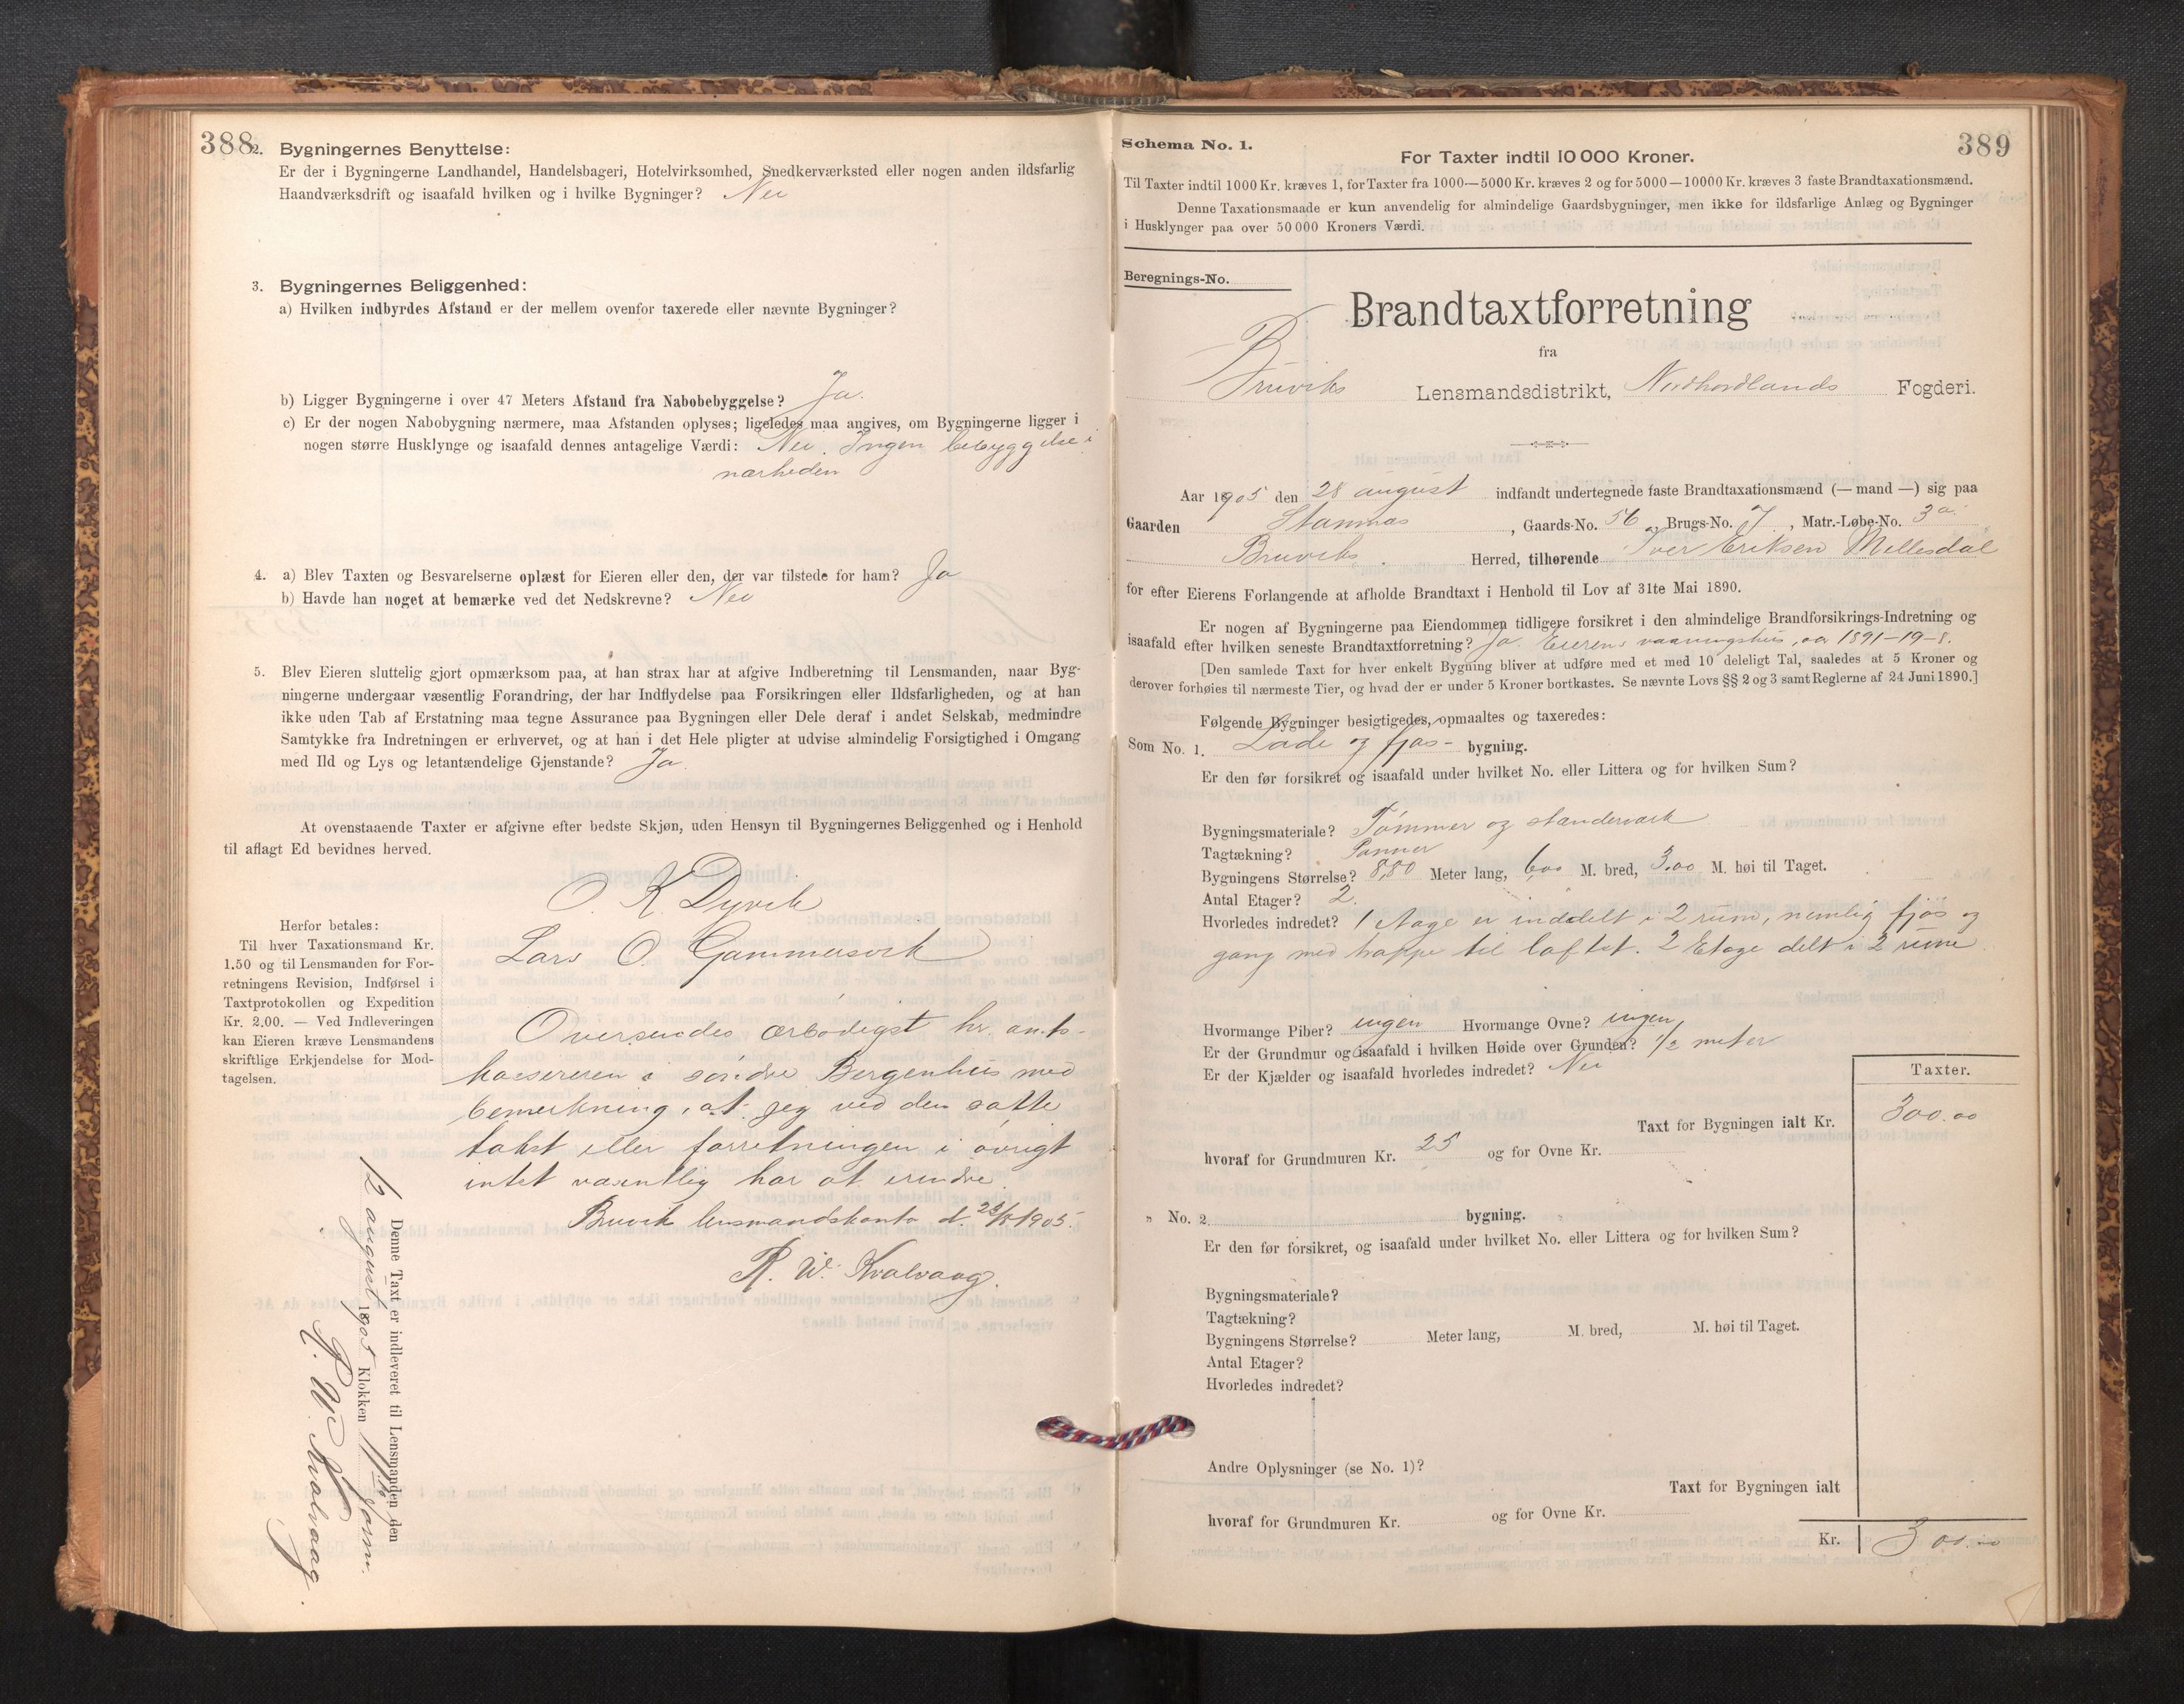 388
2. Bygningernes Benyttelse:
Er der i Bygningerne Landhandel, Handelsbageri, Hotelvirksomhed, Snedkerværksted eller nogen anden ildsfarlig
Haandværksdrift og isaafald hvilken og i hvilke Bygninger? Nei
3. Bygningernes Beliggenhed:
a) Hvilken indbyrdes Afstand er der mellem ovenfor taxerede eller nævnte Bygninger?
b) Ligger Bygningerne i over 47 Meters Afstand fra Nabobebyggelse? Ja.
c) Er der nogen Nabobygning nærmere, maa Afstanden oplyses; ligeledes maa angives, om Bygningerne ligger i
nogen større Husklynge og isaafald dennes antagelige Værdi: Nei. Ingen bebyggelse i
nærheden
4. a) Blev Taxten og Besvarelserne oplæst for Eieren eller den, der var tilstede for ham? Ja
b) Havde han noget at bemærke ved det Nedskrevne? Nei
5. Blev Eieren sluttelig gjort opmærksom paa, at han strax har at afgive Indberetning til Lensmanden, naar Byg-
ningerne undergaar væsentlig Forandring, der har Indflydelse paa Forsikringen eller Ildsfarligheden, og at han
ikke uden Tab af Erstatning maa tegne Assurance paa Bygningen eller Dele deraf i andet Selskab, medmindre
Samtykke fra Indretningen er erhvervet, og at han i det Hele pligter at udvise almindelig Forsigtighed i Omgang
med Ild og Lys og letantændelige Gjenstande? Ja.
At ovenstaaende Taxter er afgivne efter bedste Skjøn, uden Hensyn til Bygningernes Beliggenhed og i Henhold
til aflagt Ed bevidnes herved.
O. K. Dyvik
Lars O. Gammersvik
Herfor betales:
Til hver Taxationsmand Kr.
1.50 og til Lensmanden for For-
retningens Revision, Indførsel i
Taxtprotokollen og Expedition
Kr. 2.00. — Ved Indleveringen
kan Eieren kræve Lensmandens
skriftlige Erkjendelse for Mod-
tagelsen.
Oversendes ærbødigst hr. amts-
kassereren i søndre Bergenhus med
bemerkning, at jeg ved den satte
takst eller forretningen i øvrigt
intet væsentlig har at erindre.
Bruvik lensmandskontor d. 1905.
R. W. Kvalvaag.
Denne Taxt er indleveret til Lensmanden den
august 1905 Klokken form.
R. W. Kvalvaag
389
Schema No. 1.
For Taxter indtil 10 000 Kroner.
Til Taxter indtil 1000 Kr. kræves 1, for Taxter fra 1000—5000 Kr. kræves 2 og for 5000—10000 Kr. kræves 3 faste Brandtaxationsmænd.
Denne Taxationsmaade er kun anvendelig for almindelige Gaardsbygninger, men ikke for ildsfarlige Anlæg og Bygninger
i Husklynger paa over 50 000 Kroners Værdi.
Beregnings-No.
Brandtaxtforretning
fra
Bruviks Lensmandsdistrikt, Nordhordlands Fogderi.
Aar 1905 den 28 august indfandt undertegnede faste Brandtaxationsmænd (— mand —) sig paa
Gaarden Stamnæs, Gaards-No. 56 og Brugs-No. 7, Matr.-Løbe-No. 3a.
Bruviks Herred, tilhørende Iver Eriksen Mellesdal
for efter Eierens Forlangende at afholde Brandtaxt i Henhold til Lov af 31te Mai 1890.
Er nogen af Bygningerne paa Eiendommen tidligere forsikret i den almindelige Brandforsikrings-Indretning og
isaafald efter hvilken seneste Brandtaxtforretning? Ja. Eierens vaaningshus, aar 1891-19-8.
[Den samlede Taxt for hver enkelt Bygning bliver at udføre med et med 10 deleligt Tal, saaledes at 5 Kroner og
derover forhøies til nærmeste Tier, og hvad der er under 5 Kroner bortkastes. Se nævnte Lovs §§ 2 og 3 samt Reglerne af 24 Juni 1890.]
Følgende Bygninger besigtigedes, opmaaltes og taxeredes:
Som No. 1. Lade og fjøs- bygning.
Er den før forsikret og isaafald under hvilket No. eller Littera og for hvilken Sum?
Bygningsmateriale? Tømmer og standerværk
Tagtækning? Panner
Bygningens Størrelse? 8,80 Meter lang, 6,00 M. bred, 3.00 M. høi til Taget.
Antal Etager? 2.
Hvorledes indredet? 1 etage er inddelt i 2 rum, nemlig fjøs og
gang med trappe til loftet. 2 Etage delt i 2 rum
Hvormange Piber? ingen Hvormange Ovne? ingen
Er der Grundmur og isaafald i hvilken Høide over Grunden? 1/2 meter
Er der Kjælder og isaafald hvorledes indredet? Nei
Taxter.
Taxt for Bygningen ialt Kr. 300.00
hvoraf for Grundmuren Kr. 25 og for Ovne Kr.
" No. 2. bygning.
Er den før forsikret, og isaafald under hvilket No. eller Littera og for hvilken Sum?
Bygningsmateriale?
Tagtækning?
Bygningens Størrelse? Meter lang, M. bred, M. høi til Taget.
Antal Etager?
Hvorledes indredet?
Andre Oplysninger (se No. 1)?
Taxt for Bygningen ialt
hvoraf for Grundmuren Kr. og for Ovne Kr.
Kr. 300.00